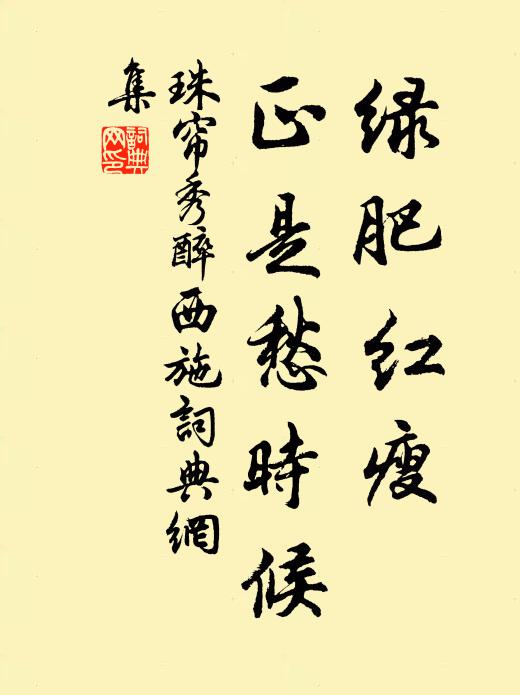 绿肥红瘦
正是愁時候
珠帘秀醉西施詞典網
集
詞典
网印